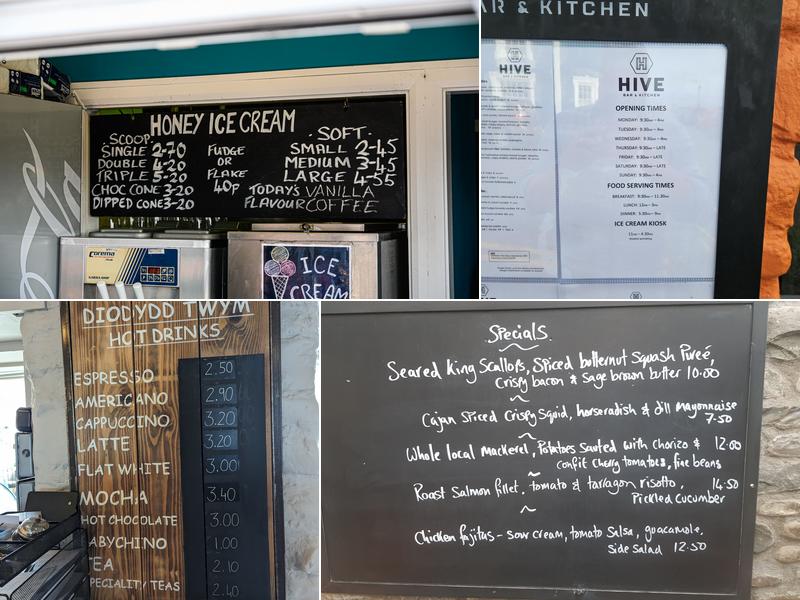 HONEY ICE CREAM
SCOOP.
SINGLE 2-70
DOUBLE 4-20
TRIPLE 5-20
CHOC CONE 3-20
DIPPED CONE 3-20
FUDGE
OR
FLAKE
40p
SOFT.
SMALL 2-45
MEDIUM 3-45
LARGE 4-55
TODAY'S VANILLA
FLAVOUR COFFEE
Corema
ICE
CREAM
BAR & KITCHEN
HIVE
BAR & KITCHEN
HIVE
BAR & KITCHEN
OPENING TIMES
MONDAY: 9:30AM – 4PM
TUESDAY: 9:30AM – 4PM
WEDNESDAY: 9:30AM – 4PM
THURSDAY: 9:30AM – LATE
FRIDAY: 9:30AM – LATE
SATURDAY: 9:30AM – LATE
SUNDAY: 9:30AM – 4PM
FOOD SERVING TIMES
BREAKFAST: 9:30AM – 11:30AM
LUNCH: 12PM – 3PM
DINNER: 5:30PM – 9PM
ICE CREAM KIOSK
11AM – 4:30PM
DIODYDD TWYM
HOT DRINKS
ESPRESSO 2.50
AMERICANO 2.90
CAPPUCCINO 3.20
LATTE 3.20
FLAT WHITE 3.00
MOCHA 3.40
HOT CHOCOLATE 3.00
BABYCHINO 1.00
TEA 2.10
SPECIALITY TEAS 2.40
Specials.
Seared King Scallops, Spiced butternut Squash Pureé,
Crispy bacon & sage brown butter 10.00
Cajan Spiced Crispy Squid, horseradish & dill Mayonnaise
7-50
Whole local mackerel, Potatoes Sauted with Chorizo & 12.00
confit Cherry tomatoes, fine beans
Roast Salmon fillet, tomato & tarragon risotto, 14.50
Pickled Cucumber
Chicken fajitas - sour cream, tomato Salsa, guacamole,
side salad 12.50